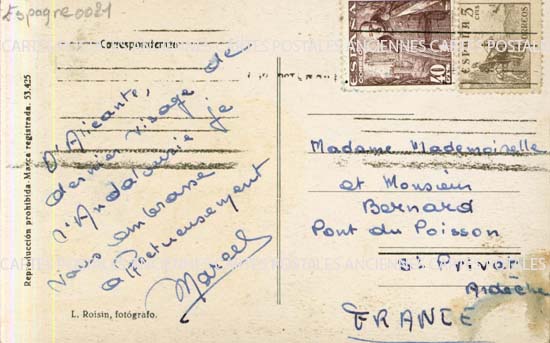 Espagne0021
Correspondencia
CARTES POSTALES ANCIENNES CARTES POSTALES
D'Alicante,
dernier visage de
l'Andalousie je
vous embrasse
affectueusement
Marcel
L. Roisin, fotógrafo.
Reproducción prohibida. Marca registrada. 53.425
ESPAÑA
40
CTS
ESPAÑA 5
CTS
CORREOS
Madame Mademoiselle
et Monsieur
Bernard
Pont du Poisson
St Privat
Ardèche
FRANCE
CARTES POSTALES ANCIENNES CARTES POSTALES